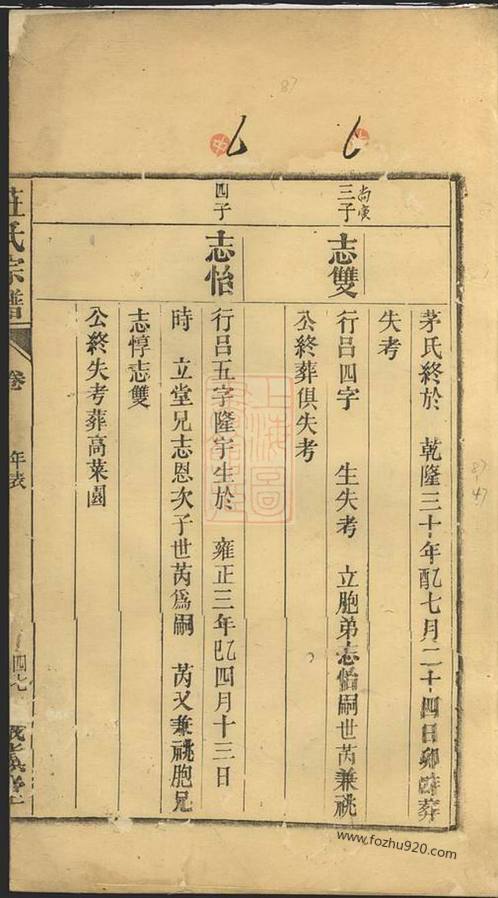 茅氏終於 乾隆三十年乙酉七月二十四日卯時葬
失考
尚賓
三子
志雙
行呂四字 生失考 立胞弟志怡嗣世芮兼祧
公終葬俱失考
四子
志怡
行呂五字隆宇生於 雍正三年乙巳四月十三日
時 立堂兄志恩次子世芮爲嗣 芮又兼祧胞兄
志惇志雙
公終失考葬高菜園
莊氏宗譜
卷
年表
上海圖
www.fozhu920.com